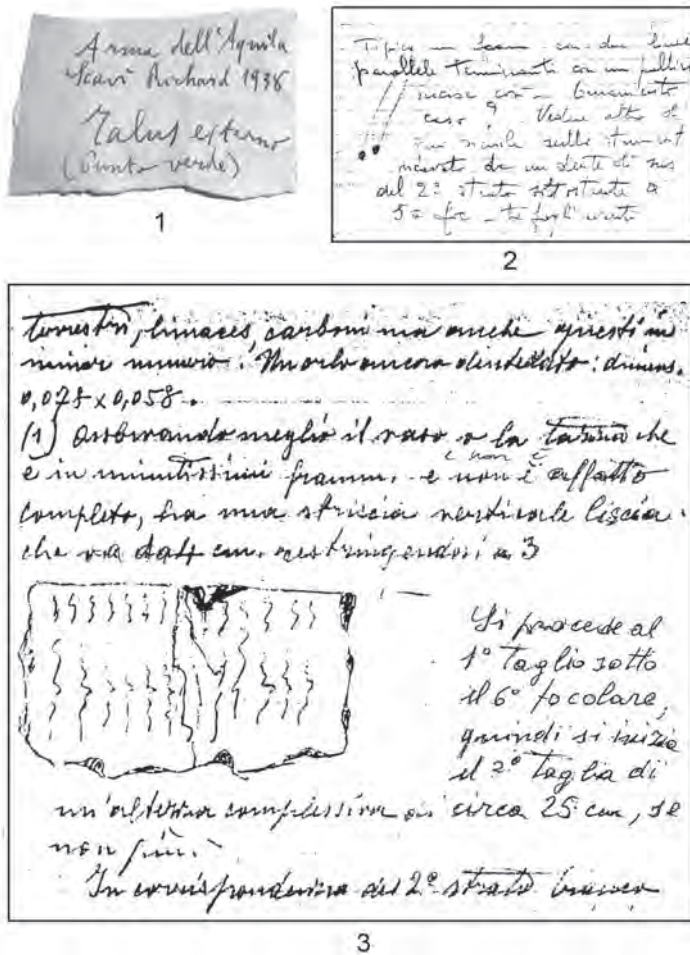 Arma dell'Aquila
Scavi Richard 1938
Talus esterno
(Punto verde)
1
Tipico un
parallele terminanti con un
incise con
caso ? Vedine altro
sullo
da un dente di
del 2° strato sottostante a
5° foc
2
terrestri, limaces, carboni ma anche questi in
minor numero. Un orlo ancora dentellato: dimens.
0,078 x 0,058.
(1) Osservando meglio il vaso o la tazzina che
e non è
è in minutissimi framm. e non è affatto
completo, ha una striscia verticale liscia
che va da 4 cm. restringendosi a 3
Si procede al
1° taglio sotto
il 6° focolare,
quindi si inizia
il 2° taglio di
un'altezza complessiva di circa 25 cm, se
non più.
In corrispondenza del 2° strato bianco
3